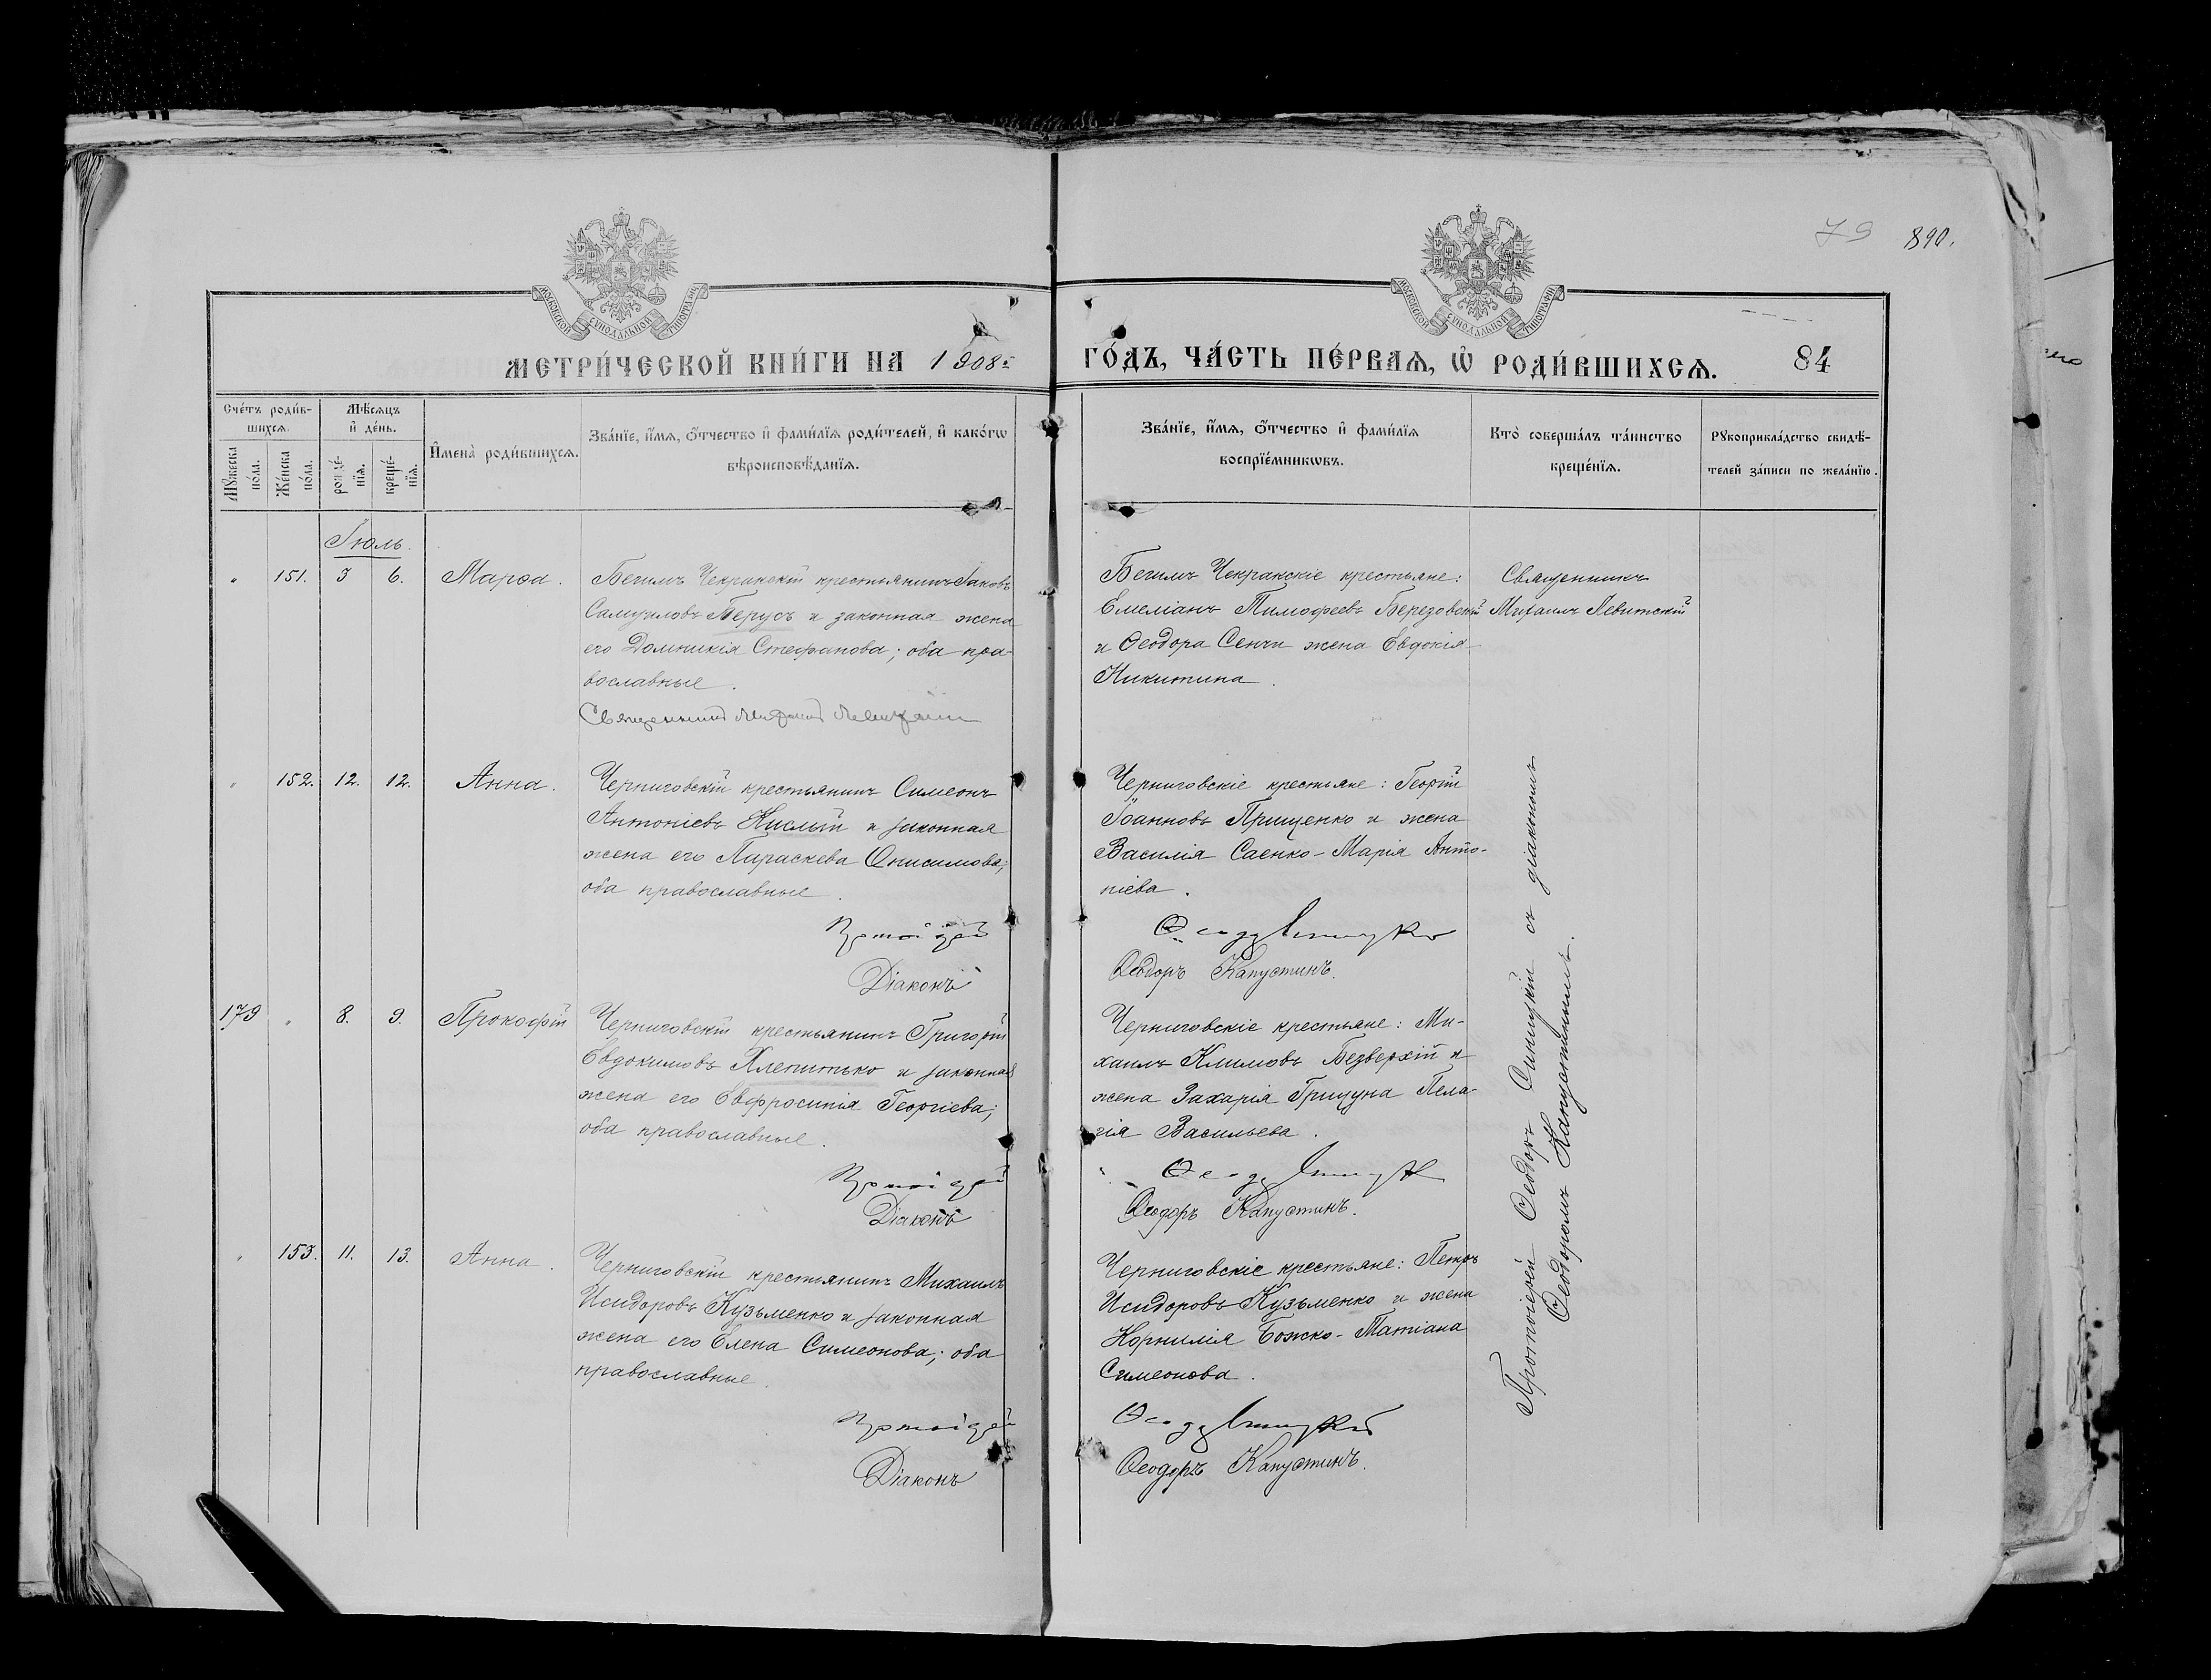 79 890.
МОСКОВСКОЙ СУНОДАЛЬНОЙ ТИПОГРАФІИ
МОСКОВСКОЙ СУНОДАЛЬНОЙ ТИПОГРАФІИ
МЕТРИ́ЧЕСКОЙ КНИ́ГИ НА 1908 ГО́ДЪ, ЧА́СТЬ ПЕ́РВАѦ, Ѡ҆ РОДИ́ВШИХСѦ. 84
Сче́тъ роди́в-
шихсѧ.
Мꙋ́жеска по́ла.
Же́нска по́ла.
Мѣ́сѧцъ и҆ де́нь.
рожде́-
нїѧ.
креще́-
нїѧ.
И҆мена̀ роди́вшихсѧ.
Зва́нїе, и҆́мѧ, ѻ҆́тчество и҆ фами́лїѧ роди́телей, и҆ како́гѡ
вѣроисповѣ́данїѧ.
Зва́нїе, и҆́мѧ, ѻ҆́тчество и҆ фами́лїѧ
воспрїе́мникѡвъ.
Кто̀ соверша́лъ та́инство
креще́нїѧ.
Рꙋкоприкла́дство свидѣ́-
телей за́писи по жела́нїю.
Іюль.
" 151. 3 6. Марѳа.
Бегимъ Чекракскій крестьянинъ Іаковъ
Самуиловъ Берусъ и законная жена
его Домникія Стефанова; оба пра-
вославные.
Священникъ Михаилъ Левитскій
Бегимъ Чокракскіе крестьяне:
Емеліанъ Тимофеевъ Березовскій
и Ѳеодора Сенчи жена Евдокія
Никитина.
Священникъ
Михаилъ Левитскій
" 152. 12. 12. Анна.
Черниговскій крестьянинъ Симеонъ
Антоніевъ Кислый и законная
жена его Параскева Онисимова;
оба православные.
Протоіерей
Діаконъ
Черниговскіе крестьяне: Георгій
Іоанновъ Прищенко и жена
Василія Саенко - Марія Анто-
ніева.
Ѳеодоръ Капустинъ.
179 " 8. 9. Прокофій
Черниговскій крестьянинъ Григорій
Евдокимовъ Хлепитько и законная
жена его Евфросинія Георгіева;
оба православные.
Протоіерей
Діаконъ
Черниговскіе крестьяне: Ми-
хаилъ Климовъ Безверхій и
жена Захарія Грицуна Пела-
гія Васильева.
Ѳеодоръ Капустинъ.
" 153. 11. 13. Анна.
Черниговскій крестьянинъ Михаилъ
Исидоровъ Кузьменко и законная
жена его Елена Симеонова; оба
православные.
Протоіерей
Діаконъ
Черниговскіе крестьяне: Петръ
Исидоровъ Кузьменко и жена
Корнилія Божко - Татіана
Симеонова.
Ѳеодоръ Капустинъ.
Протоіерей Ѳеодоръ Синицкій съ діакономъ
Ѳеодоромъ Капустинымъ.